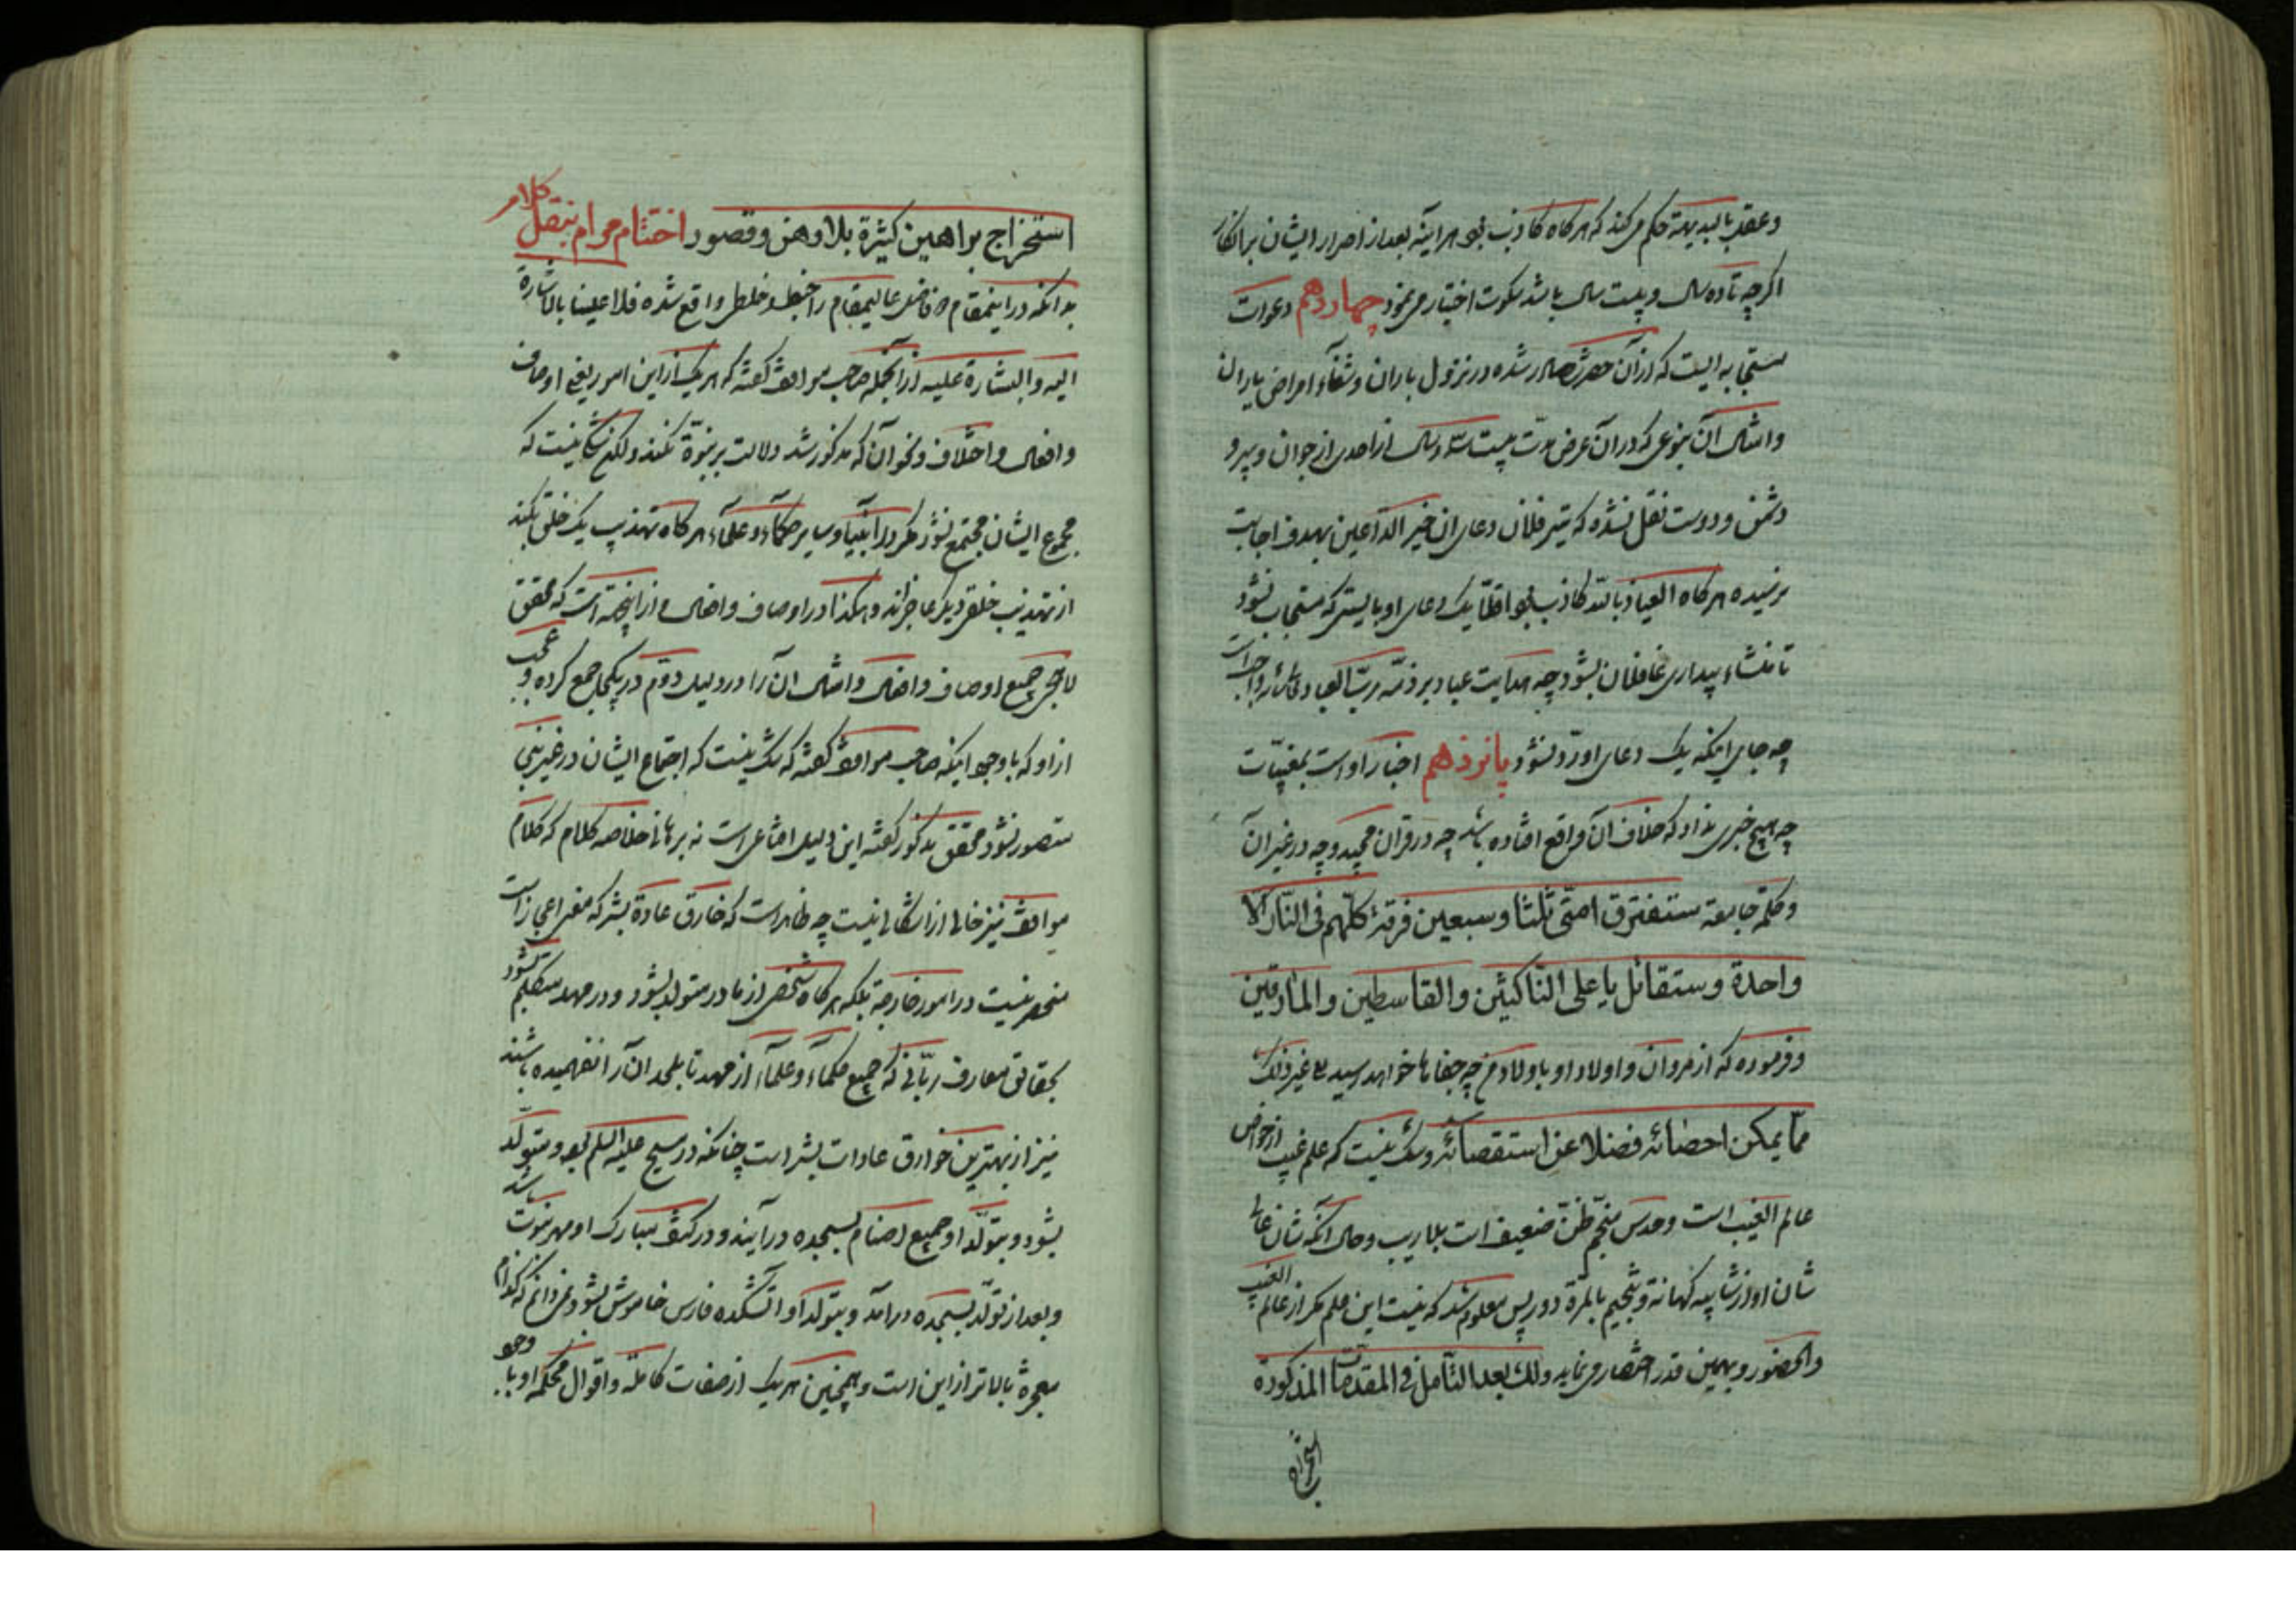 وعقل بالبدیهة حکم می‌کند که هرکاه کاذب بود هراینه بعد از اصرار ایشان بر انکار
اکرچه تا ده سال و بیست سال باشد سکوت اختیار می‌نمود چهاردهم دعوات
مستجابه ایست که ازآن حضرت صادر شده در نزول باران و شفآء امراض یاران
وامثال آن بنوعی که در آن عرض مدت بیست سه سال از احدی از جوان و پیر و
دشمن و دوست نقل نشده که تیر فلان دعای ان خیر الداعین بهدف اجابت
نرسیده هرکاه العیاذ بالله کاذب بود اقلا یک دعای او بایستی که مستجاب نشود
تا منشاء بیداری غافلان بشود چه هدایت عباد بر ذمّه ربّ العباد واجب است
چه جای اینکه یک دعای او ردّ نشود پانزدهم اخبار اوست بمغیبات
چه هیچ خبری نداد که خلاف آن واقع افتاده باشد چه در قران مجید و چه در غیر آن
وکلمه جامعه ستفترق امتی ثلثا وسبعین فرقة کلّهم فی النّار الّا
واحدة وستقاتل یا علی النّاکثین والقاسطین والمارقین
وفرموده که از مروان و اولاد او باولاد من چه جفاها خواهد رسید الی غیر ذلک
ممّا یمکن احصائه فضلا عن استقصائه وشک نیست که علم غیب از خواص
عالم الغیب است وحدس منجّم ظنّ ضعیف است بلاریب وحال آنکه شان عالی
شان او از شایبه کهانة وتنجیم بالمرّة دور پس معلوم شد که نیست این علم مکر از عالم الغیب
والحضور وبهمین قدر اختصار می‌نماید ولک بعد التأمل فی المقدمات المذکورة
استخراج
استخراج براهین کثیرة بلا وهن وقصور اختتام مرام بنقل کلام
بدانکه در اینمقام فاضل عالیمقام را خبط وخلط واقع شده فلا علینا بالاشارة
الیه والبشارة علیه از آنجمله صاحب مواقف کفته که هریک از این امور یعنی اوصاف
وافعال واخلاق ونحو آن که مذکور شد دلالت بر نبوّة نکند ولکن شک نیست که
مجموع ایشان مجتمع نشود مکر در انبیا وسایر حکمآء وعلمآء هرکاه تهذیب یک خلق بکند
از تهذیب خلق دیکر عاجزاند وهکذا در اوصاف وافعال واز اینجهة است که محقق
لاهیجی جمیع اوصاف وافعال وامثال ان را در دلیل دوّم در یکجا جمع کرده وعجب
از او که با وجود اینکه صاحب مواقف کفته که شک نیست که اجتماع ایشان در غیر نبی
متصور نشود محقق مذکور کفته این دلیل اقناعی است نه برهانی خلاصه کلام که کلام
مواقف نیز خالی از اشکالی نیست چه ظاهر است که خارق عادة بشر که معنی اعجاز است
منحصر نیست در امور خارجة بلکه هرکاه شخصی از مادر متولد بشود ودر مهد متکلم شود
بحقائق معارف ربّانی که جمیع حکمآء وعلمآء از مهد تا بلحد ان را نفهمیده باشند
نیز از بهترین خوارق عادات بشر است چنانکه در مسیح علیه السلم بود ومتولّد
بشود وبتولّد او جمیع اصنام بسجده درآیند ودر کتف مبارک او مهر نبوت باشد
وبعد از تولّد بسجده درامد وبتولد او اتشکده فارس خاموش بشود نمی‌دانم که کدام
معجزه بالاتر از این است وهمچنین هریک از صفات کامله واقوال محکمه او با وجود